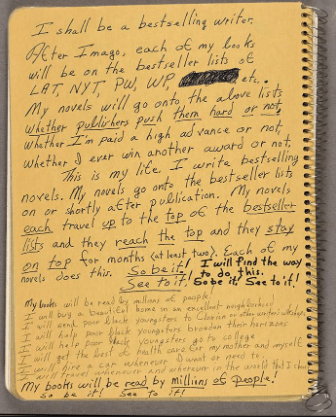 I shall be a bestselling writer.
After Imago, each of my books
will be on the bestseller lists of
LAT, NYT, PW, WP, etc.
My novels will go onto the above lists
whether publishers push them hard or not,
whether I'm paid a high advance or not,
whether I ever win another award or not.
This is my life. I write bestselling
novels. My novels go onto the bestseller lists
on or shortly after publication. My novels
each travel up to the top of the bestseller
lists and they reach the top and they stay
on top for months (at least two). Each of my
novels does this.
So be it! I will find the way
See to it! to do this.
So be it! See to it!
My books will be read by millions of people!
I will buy a beautiful home in an excellent neighborhood
I will send poor black youngsters to Clarion or other writer's workshops
I will help poor black youngsters broaden their horizons
I will help poor black youngsters go to college
I will get the best of health care for my mother and myself
I will hire a car whenever I want or need to.
I will travel whenever and wherever in the world that I
My books will be read by millions of people!
So be it! See to it!